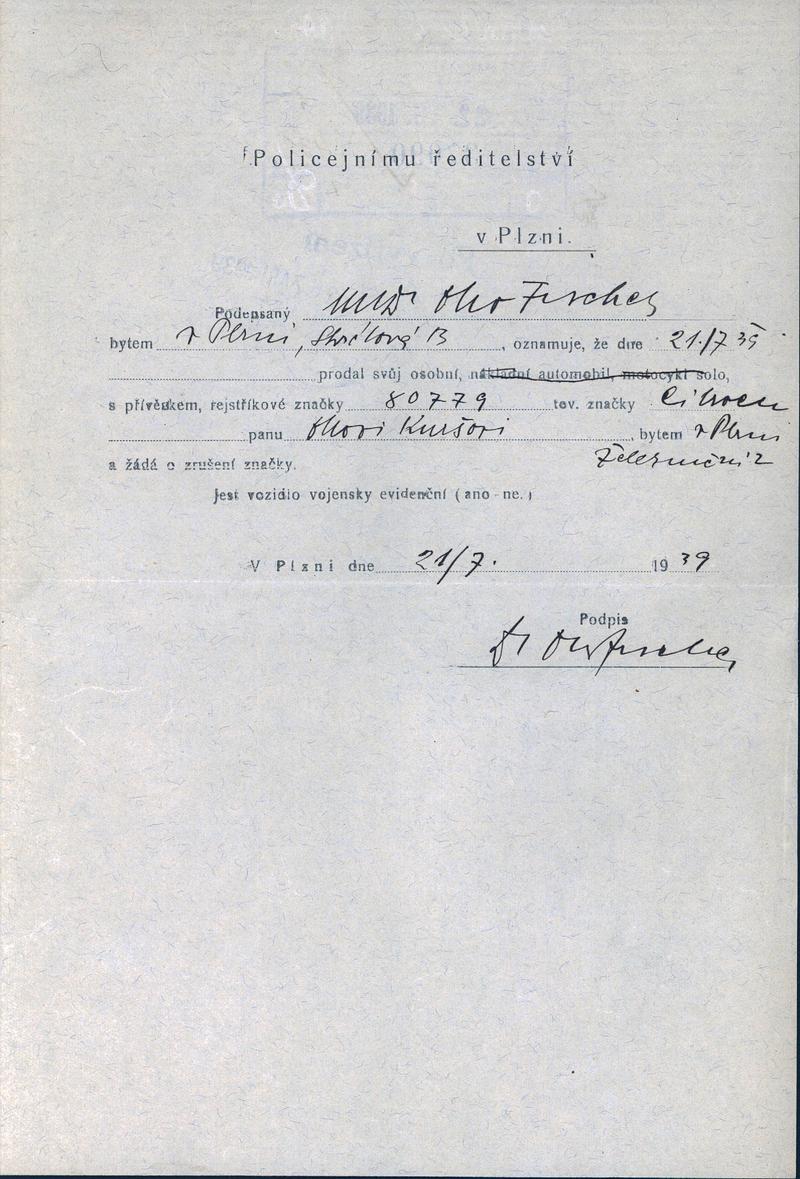 Policejnímu ředitelství
v Plzni.
Podepsaný MUDr Oto Fischer
bytem v Plzni, 13, oznamuje, že dne 21./7 39
prodal svůj osobní, nákladní automobil, motocykl solo,
s přívěskem, rejstříkové značky 80779 tov. značky Citroen
panu Otovi bytem v Plzni
a žádá o zrušení značky. Železniční 2
Jest vozidlo vojensky evidenční (ano - ne.)
V Plzni dne 21/7. 1939
Podpis
Dr Oto Fischer